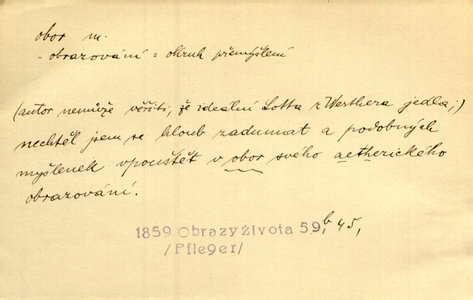 obor m.
- obrazování = okruh přemýšlení
(autor nemůže věřiti, že ideální Lotta z Werthera jedla;)
nechtěl jsem se hloub zadumat a podobných
myšlenek vpouštět v obor svého aetherického
obrazování.
1859 Obrazy života 59, b 45,
/Pfleger/